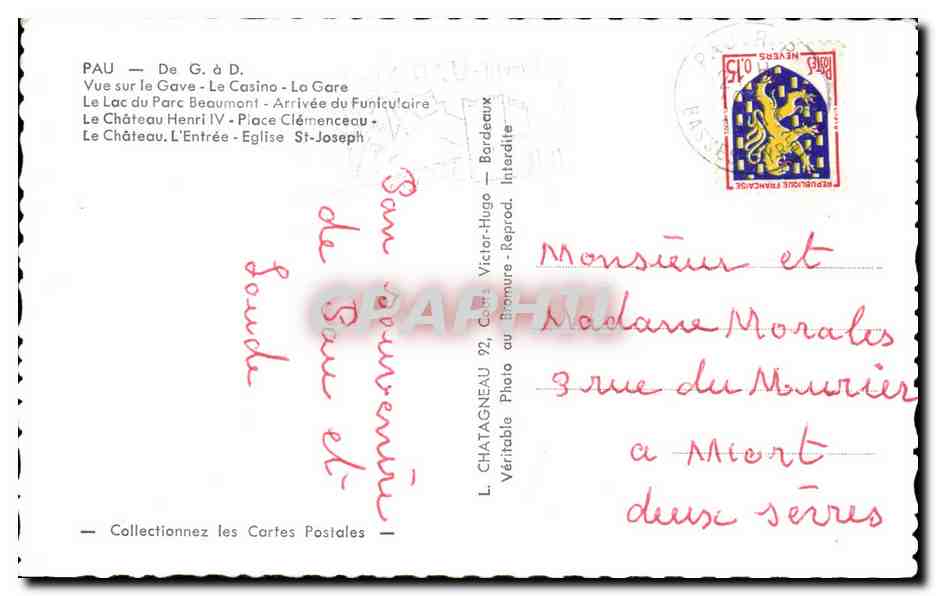 PAU — De G. à D.
Vue sur le Gave - Le Casino - La Gare
Le Lac du Parc Beaumont - Arrivée du Funiculaire
Le Château Henri IV - Place Clémenceau -
Le Château. L'Entrée - Eglise St-Joseph
San souvenire
de Pau et
Lourde
— Collectionnez les Cartes Postales —
L. CHATAGNEAU 92, Cours Victor-Hugo — Bordeaux
Véritable Photo au Bromure - Reprod. Interdite
CPAPHIL
PAU
0,15
POSTES
NEVERS
REPUBLIQUE FRANCAISE
Monsieur et
Madame Morales
3 rue du Murier
a Miort
deux sêrres